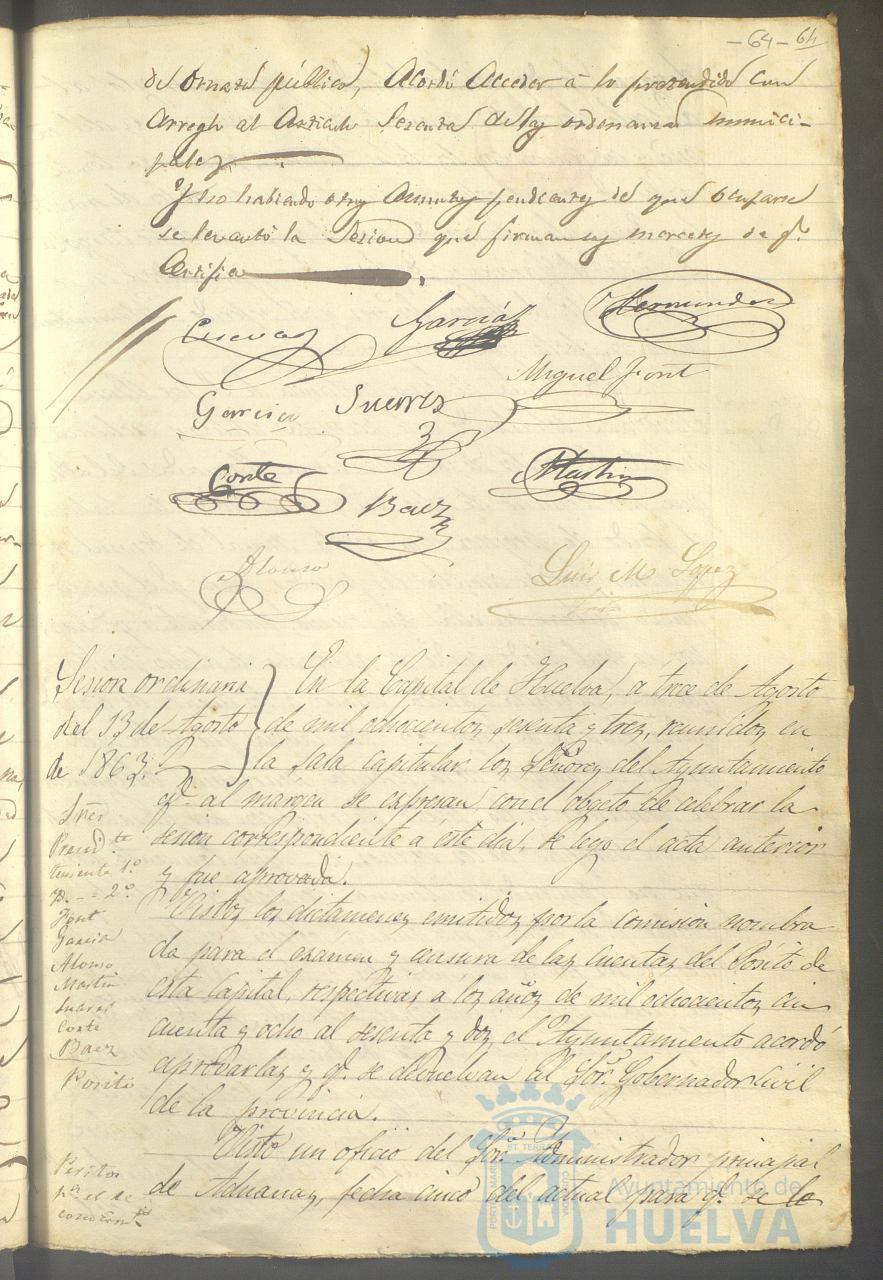 - 64 - 64
de ornato público, Acordó Acceder á lo pretendido con
arreglo al Articulo Sesenta de las ordenanzas munici-
pales
Y no habiendo otros Asuntos pendientes de que ocuparse
se levantó la Sesion que firman sus mercedes de q.
Certifico
Cuevas García Hernandez
Miguel Font
Garcia Suarez
Conte Martin
Baez
Alonso
Luis M Lopez
Srio
Sesion ordinaria
del 13 de Agosto
de 1863.
En la Capital de Huelva, á trece de Agosto
de mil ochocientos sesenta y tres, reunidos en
la Sala capitular los Señores del Ayuntamiento
q.e al márgen se expresan con el objeto de celebrar la
sesion correspondiente á este dia, se leyo el acta anterior
y fue aprovada.
Sres
Presid.te
teniente 1.º
D. -- 2.º
Font
Garcia
Alonso
Martin
Suarez
Conte
Baez
Posito
Vistos los dictamenes emitidos por la comision nombra
da para el examen y censura de las cuentas del Pósito de
esta Capital, respectivas á los años de mil ochocientos cin
cuenta y ocho al sesenta y dos, el Ayuntamiento acordó
aprobarlas y q.e se devuelvan al Sor. Gobernador Civil
de la provincia.
Peritos
p.a el de
Visto un oficio del Sor. Administrador principal
de Aduanas, fecha cinco del actual para q.e se le
Ayuntamiento de
HUELVA